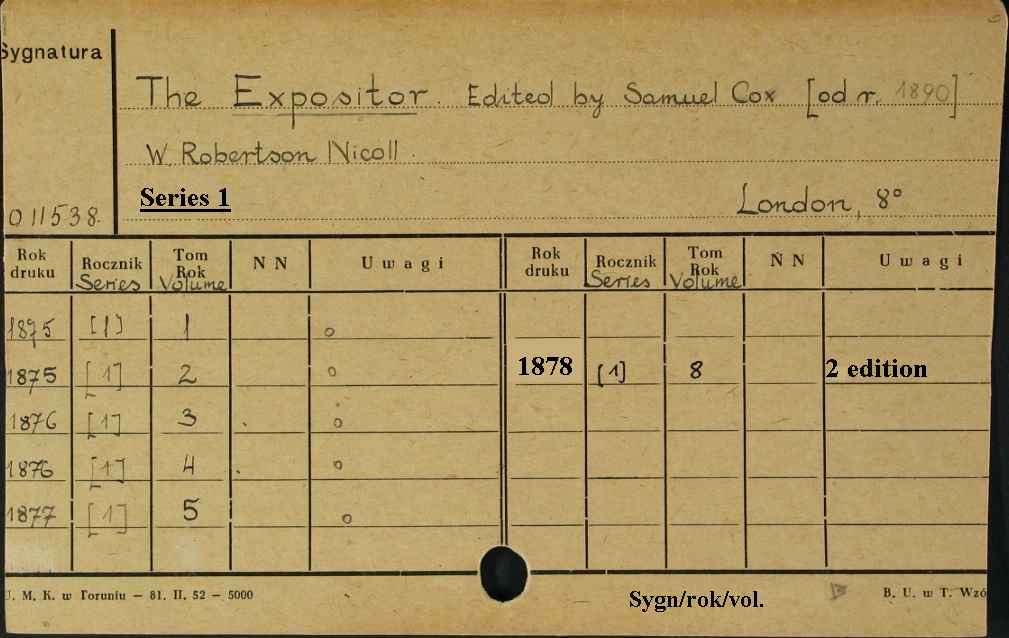 Sygnatura
The Expositor. Edited by Samuel Cox [od r. 1890]
W. Robertson Nicoll.
Series 1
London, 8°
011538.
Rok druku Rocznik Series Tom Rok Volume N N Uwagi Rok druku Rocznik Series Tom Rok Volume N N Uwagi
1875 [1] 1 o
1875 [1] 2 o 1878 [1] 8 2 edition
1876 [1] 3 o
1876 [1] 4 o
1877 [1] 5 o
U. M. K. w Toruniu – 81. II. 52 – 5000
Sygn/rok/vol.
B. U. w T. Wzó